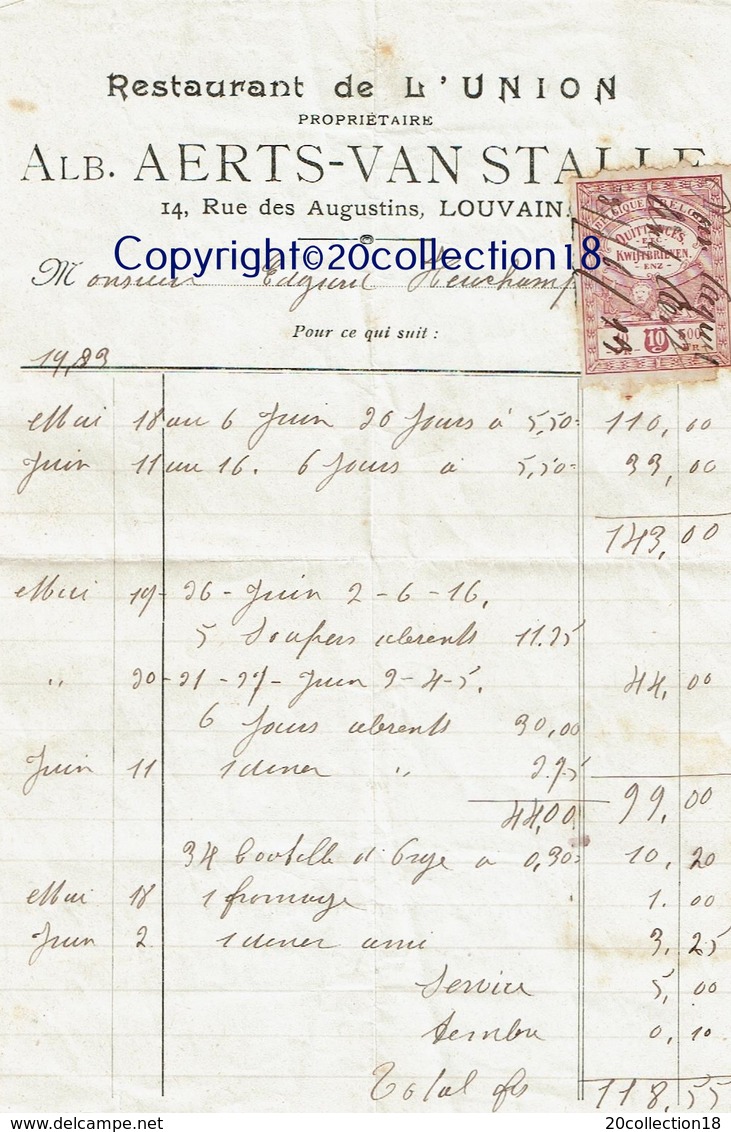 Restaurant de L'UNION
PROPRIÉTAIRE
ALB. AERTS-VAN STALLE
14, Rue des Augustins, LOUVAIN.
Copyright©20collection18
Monsieur Edgard
Pour ce qui suit :
QUITTANCES,
ETC.
KWIJTBRIEVEN,
ENZ
10 500
Mai 18 au 6 Juin 20 Jours à 5,50= 110,00
Juin 11 au 16. 6 Jours à 5,50= 33,00
143,00
Mai 19-26-Juin 2-6-16.
5 Soupers absents 11.25
" 20-21-27-Juin 3-4-5. 44,00
6 Jours absents 30,00
Juin 11 1 diner " 2.75
44,00 99,00
34 bouteille d'Orge à 0,30= 10,20
Mai 18 1 fromage 1.00
Juin 2 1 diner ami 3.25
Service 5,00
timbre 0,10
Total frs 118,55
20collection18